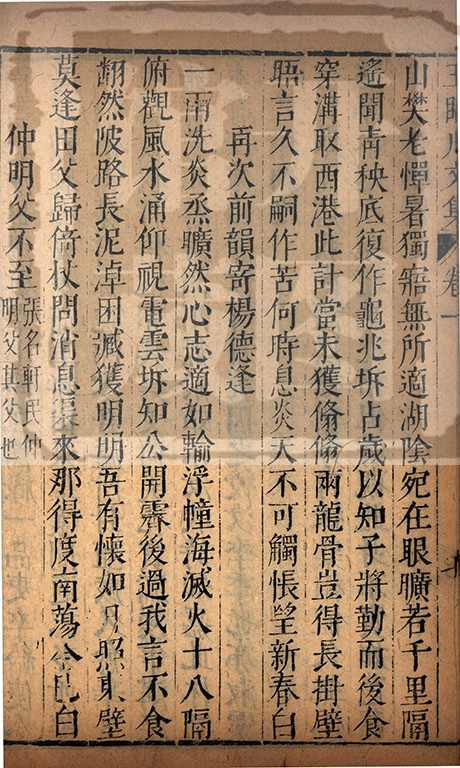 王臨川文集 卷一
山樊老憚暑獨寤無所適湖陰宛在眼曠若千里隔
遙聞青秧底復作龜兆坼占歲以知子將勤而後食
穿溝取西港此計當未獲翛翛兩龍骨豈得長掛壁
晤言久不嗣作苦何時息炎天不可觸悵望新春白
再次前韻寄楊德逢
一雨洗炎烝曠然心志適如輪浮幢海滅火十八隔
俯觀風水涌仰視電雲坼知公開霽後過我言不食
翻然陂路長泥淖困臧獲明明吾有懷如月照東壁
莫逢田父歸倚杖問消息渠來那得度南蕩今已白
仲明父不至
張名軒民仲
明父其父也